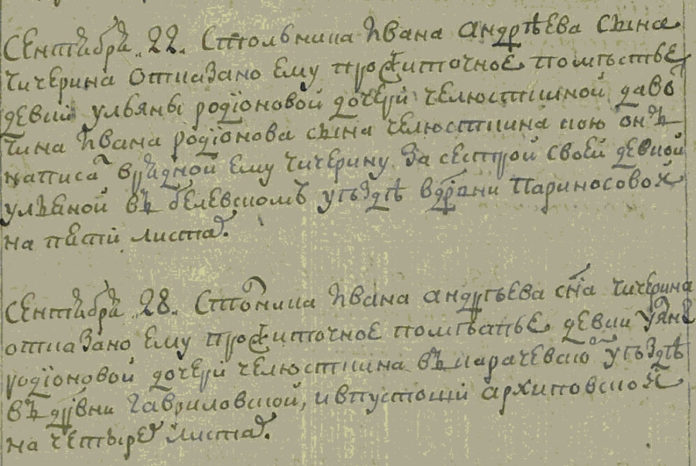 Сентября 22. Стольника Ивана Андрѣева сына
Чичерина отказано ему прожиточное помѣстье
девки Ульяны Родїоновой дочери Челюсткиной да во
тчина Ивана Родїонова сына Челюсткина кою онъ
написа в рядной ему Чичерину за сестрой своей девкой
Ульяной въ Белевскомъ уѣздѣ в дрвни Париносовой
на пети листах.
Сентября 28. Столника Ивана Андрѣева сна Чичерина
отказано ему прожиточное помѣстье девки Уляны
Родїоновой дочери Челюсткина въ Карачевско уѣздѣ
въ дрвни Гавриловской, и в пустоши Архиповской
на четыре листах.